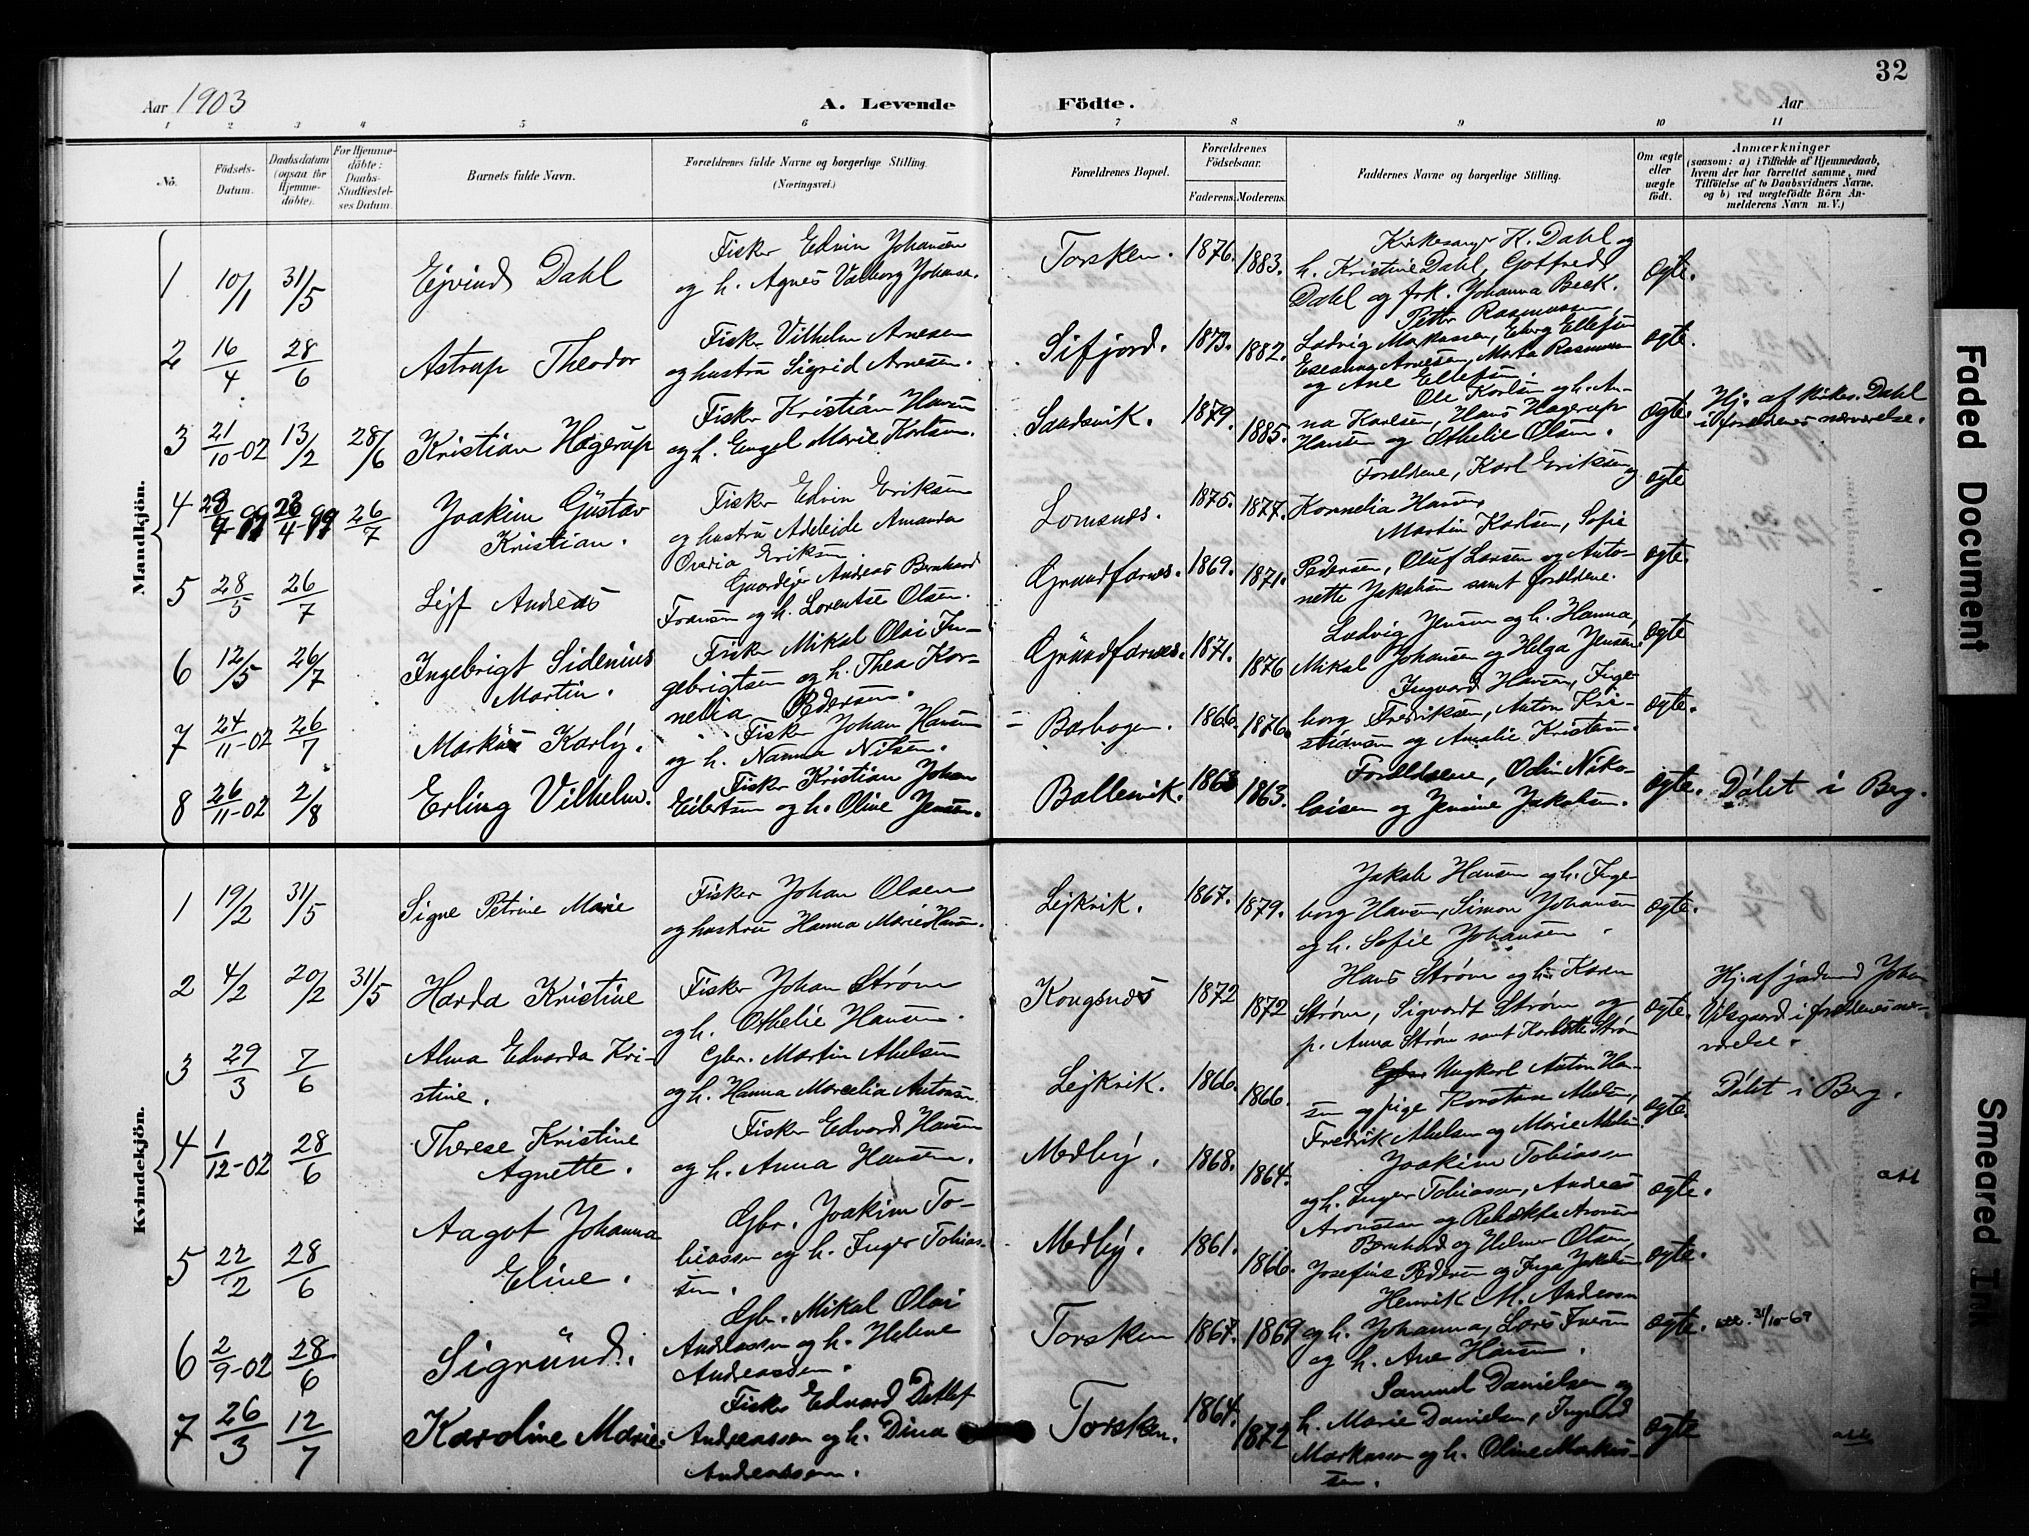 32
Aar 1903
A. Levende Födte.
Aar
1 2 3 4 5 6 7 8 9 10 11
No.
Födsels-Datum.
Daabsdatum (ogsaa for Hjemme-döbte).
For Hjemme-döbte: Daabs-Stadfæstel-ses Datum.
Barnets fulde Navn.
Forældrenes fulde Navne og borgerlige Stilling. (Næringsvei.)
Forældrenes Bopæl.
Forældrenes Födselsaar.
Faderens. Moderens.
Faddernes Navne og borgerlige Stilling.
Om ægte eller uægte födt.
Anmærkninger
(saasom: a) i Tilfælde af Hjemmedaab, hvem der har forrettet samme, med Tilföielse af to Daabsvidners Navne, og b) ved uægtefödte Börn An-melderens Navn m. V.)
Mandkjön.
1 10/1 31/5 Ejvind Dahl
Fisker Edvin Johansen
og h. Agnes Valborg Johanse.
Torsken. 1876. 1883.
Kirkesanger K. Dahl og
h. Kristine Dahl, Gotfred
Dahl og frk. Johanna Beck.
ægte.
2 16/4 28/6 Astrup Theodor
Fisker Vilhelm Arnesen
og hustru Sigrid Arnesen.
Sifjord. 1873. 1882.
Petter Rasmussen,
Ludvig Markussen, Ellefsen
Arnesen, Marta Rasmussen
og Ane Ellefsen.
ægte.
3 21/10-02 13/2 28/6 Kristian Hagerup
Fisker Kristian Hansen
og h. Engel Marie Karlsen.
Sandsvik. 1879. 1885.
Ole Karlsen og h. An-
na Karlsen, Hans Hagerup
Hansen og Othelie Olsen.
ægte.
Hj. af kirkes. Dahl
i forældrenes nærværelse.
4 26/7 Joakim Gustav
Kristian.
Fisker Edvin Eriksen
og hustru Adeleide Amanda
Ovedia Eriksen
Lomsnes. 1875. 1877.
Forældrene, Karl Eriksen og
Kornelia Hansen,
ægte
5 28/5 26/7 Lejf Andreas
Gaardejer Andreas Bernhard
Fransen og h. Lorentse Olsen.
Grundfarnes. 1869. 1871.
Martin Karlsen, Sofie
Pedersen, Oluf Larsen og Anto-
nette Jakobsen samt forældrene.
ægte.
6 12/5 26/7 Ingebrigt Sidenius
Martin.
Fisker Mikal Olai In-
gebrigtsen og h. Thea Kor-
nelia Pedersen.
Grundfarnes. 1871. 1876
Ludvig Jensen og h. Hanna,
Mikal Johansen og Helga Jensen
ægte
7 24/11-02 26/7 Markus Karly.
Fisker Johan Hansen
og h. Nanna Nilsen.
Barbogen. 1866. 1876.
Ingvard Hansen, Inge
borg Fredriksen, Anton Kri-
stiansen og Amalie Kristensen.
ægte.
8 26/11-02 2/8 Erling Vilhelm.
Fisker Kristian Johan
Eilertsen og h. Oline Jensen.
Ballesvik. 1868 1863.
Forældrene, Odin Niko-
laisen og Jensine Jakobsen.
ægte. Döbt i Berg.
Kvindekjön.
1 19/2 31/5 Signe Petrine Marie
Fisker Johan Olsen
og hustru Hanna Marie Hansen.
Lejkvik. 1867. 1879.
Jakob Hansen og h. Inge
borg Hansen, Simon Johansen
og h. Sofie Johansen.
ægte.
2 4/2 20/2 31/5 Harda Kristine
Fisker Johan Strøm
og h. Othelie Hansen.
Kongsnes 1872 1872
Hans Strøm og h. Karen
Strøm, Sigvardt Strøm og
p. Anna Strøm samt Karlotte Strøm
ægte.
Hj. af jordmod Johan
Vilsgaard i forældrenes nær-
værelse.
3 29/3 7/6 Alma Edvarda Kri-
stine.
Gbr. Martin Abelsen
og h. Hanna Marselia Antonsen.
Lejkvik. 1866. 1866.
Ungkarl Anton Han-
sen og pige Konstanse
Fredrik Abelsen og Marie Abelsen.
ægte Döbt i Berg.
4 1/12-02 28/6 Therese Kristine
Agnette.
Fisker Edvard Hansen
og h. Anna Hansen.
Medby. 1868. 1864.
Joakim Tobiassen
og h. Inger Tobiassen, Andreas
Aronsen og Rebekka Aronsen
ægte. att
5 22/2 28/6 Aagot Johanna
Eline.
Gbr. Joakim To-
biassen og h. Inger Tobias-
sen.
Medby. 1861. 1866.
Bernhard og Helmer Olsen,
Josefine Pedersen og Inga Jakobsen
ægte.
6 2/9-02 28/6 Sigründ.
Gbr. Mikal Olai
Andreassen og h. Helene
Andreassen.
Torsken 1867. 1869
Henrik M. Andersen
og h. Johanna, Lars Iversen
og h. Ane Hansen.
ægte. att. 31/10-69
7 26/3 12/7 Karoline Marie.
Fisker Edvard Detlef
Andreassen og h. Dina
Andreassen.
Torsken. 1864. 1872
Samuel Danielsen og
h. Marie Danielsen, Ingvald
Markussen og h. Oline Markus-
sen.
ægte att.
Faded Document
Smeared Ink